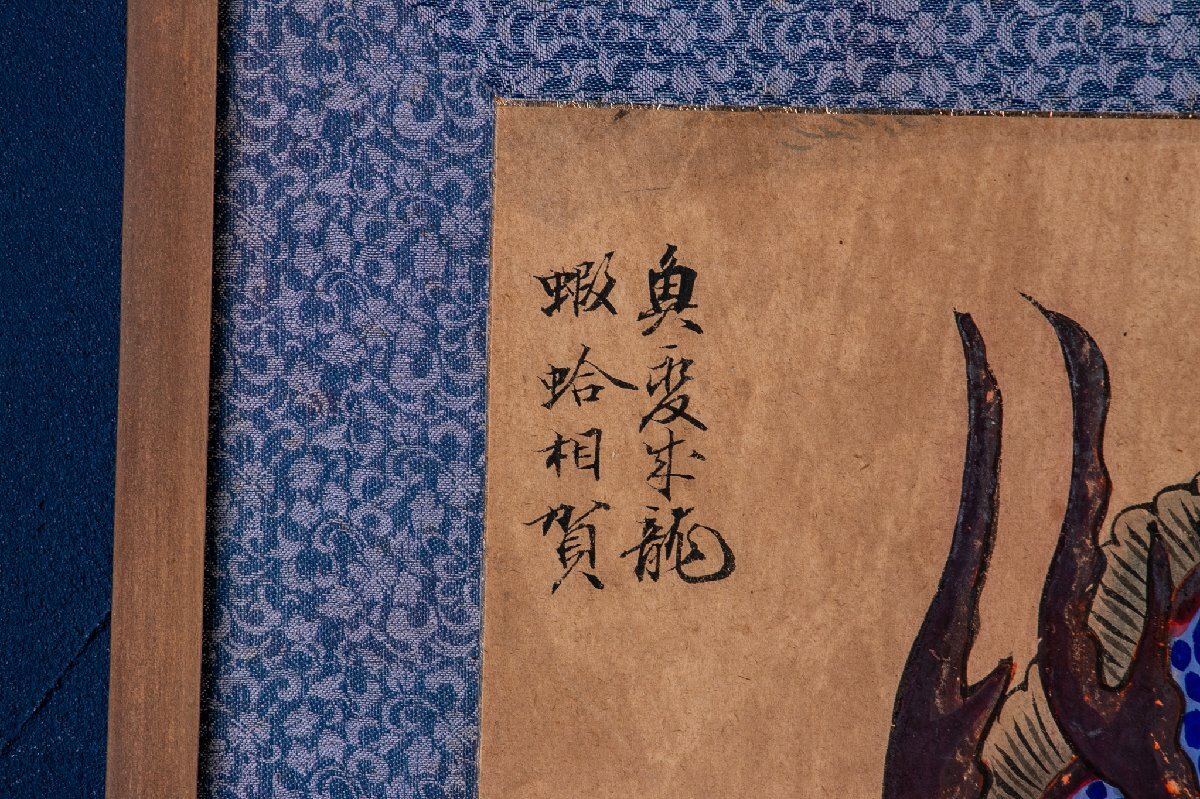 魚變成龍
蝦蛤相賀